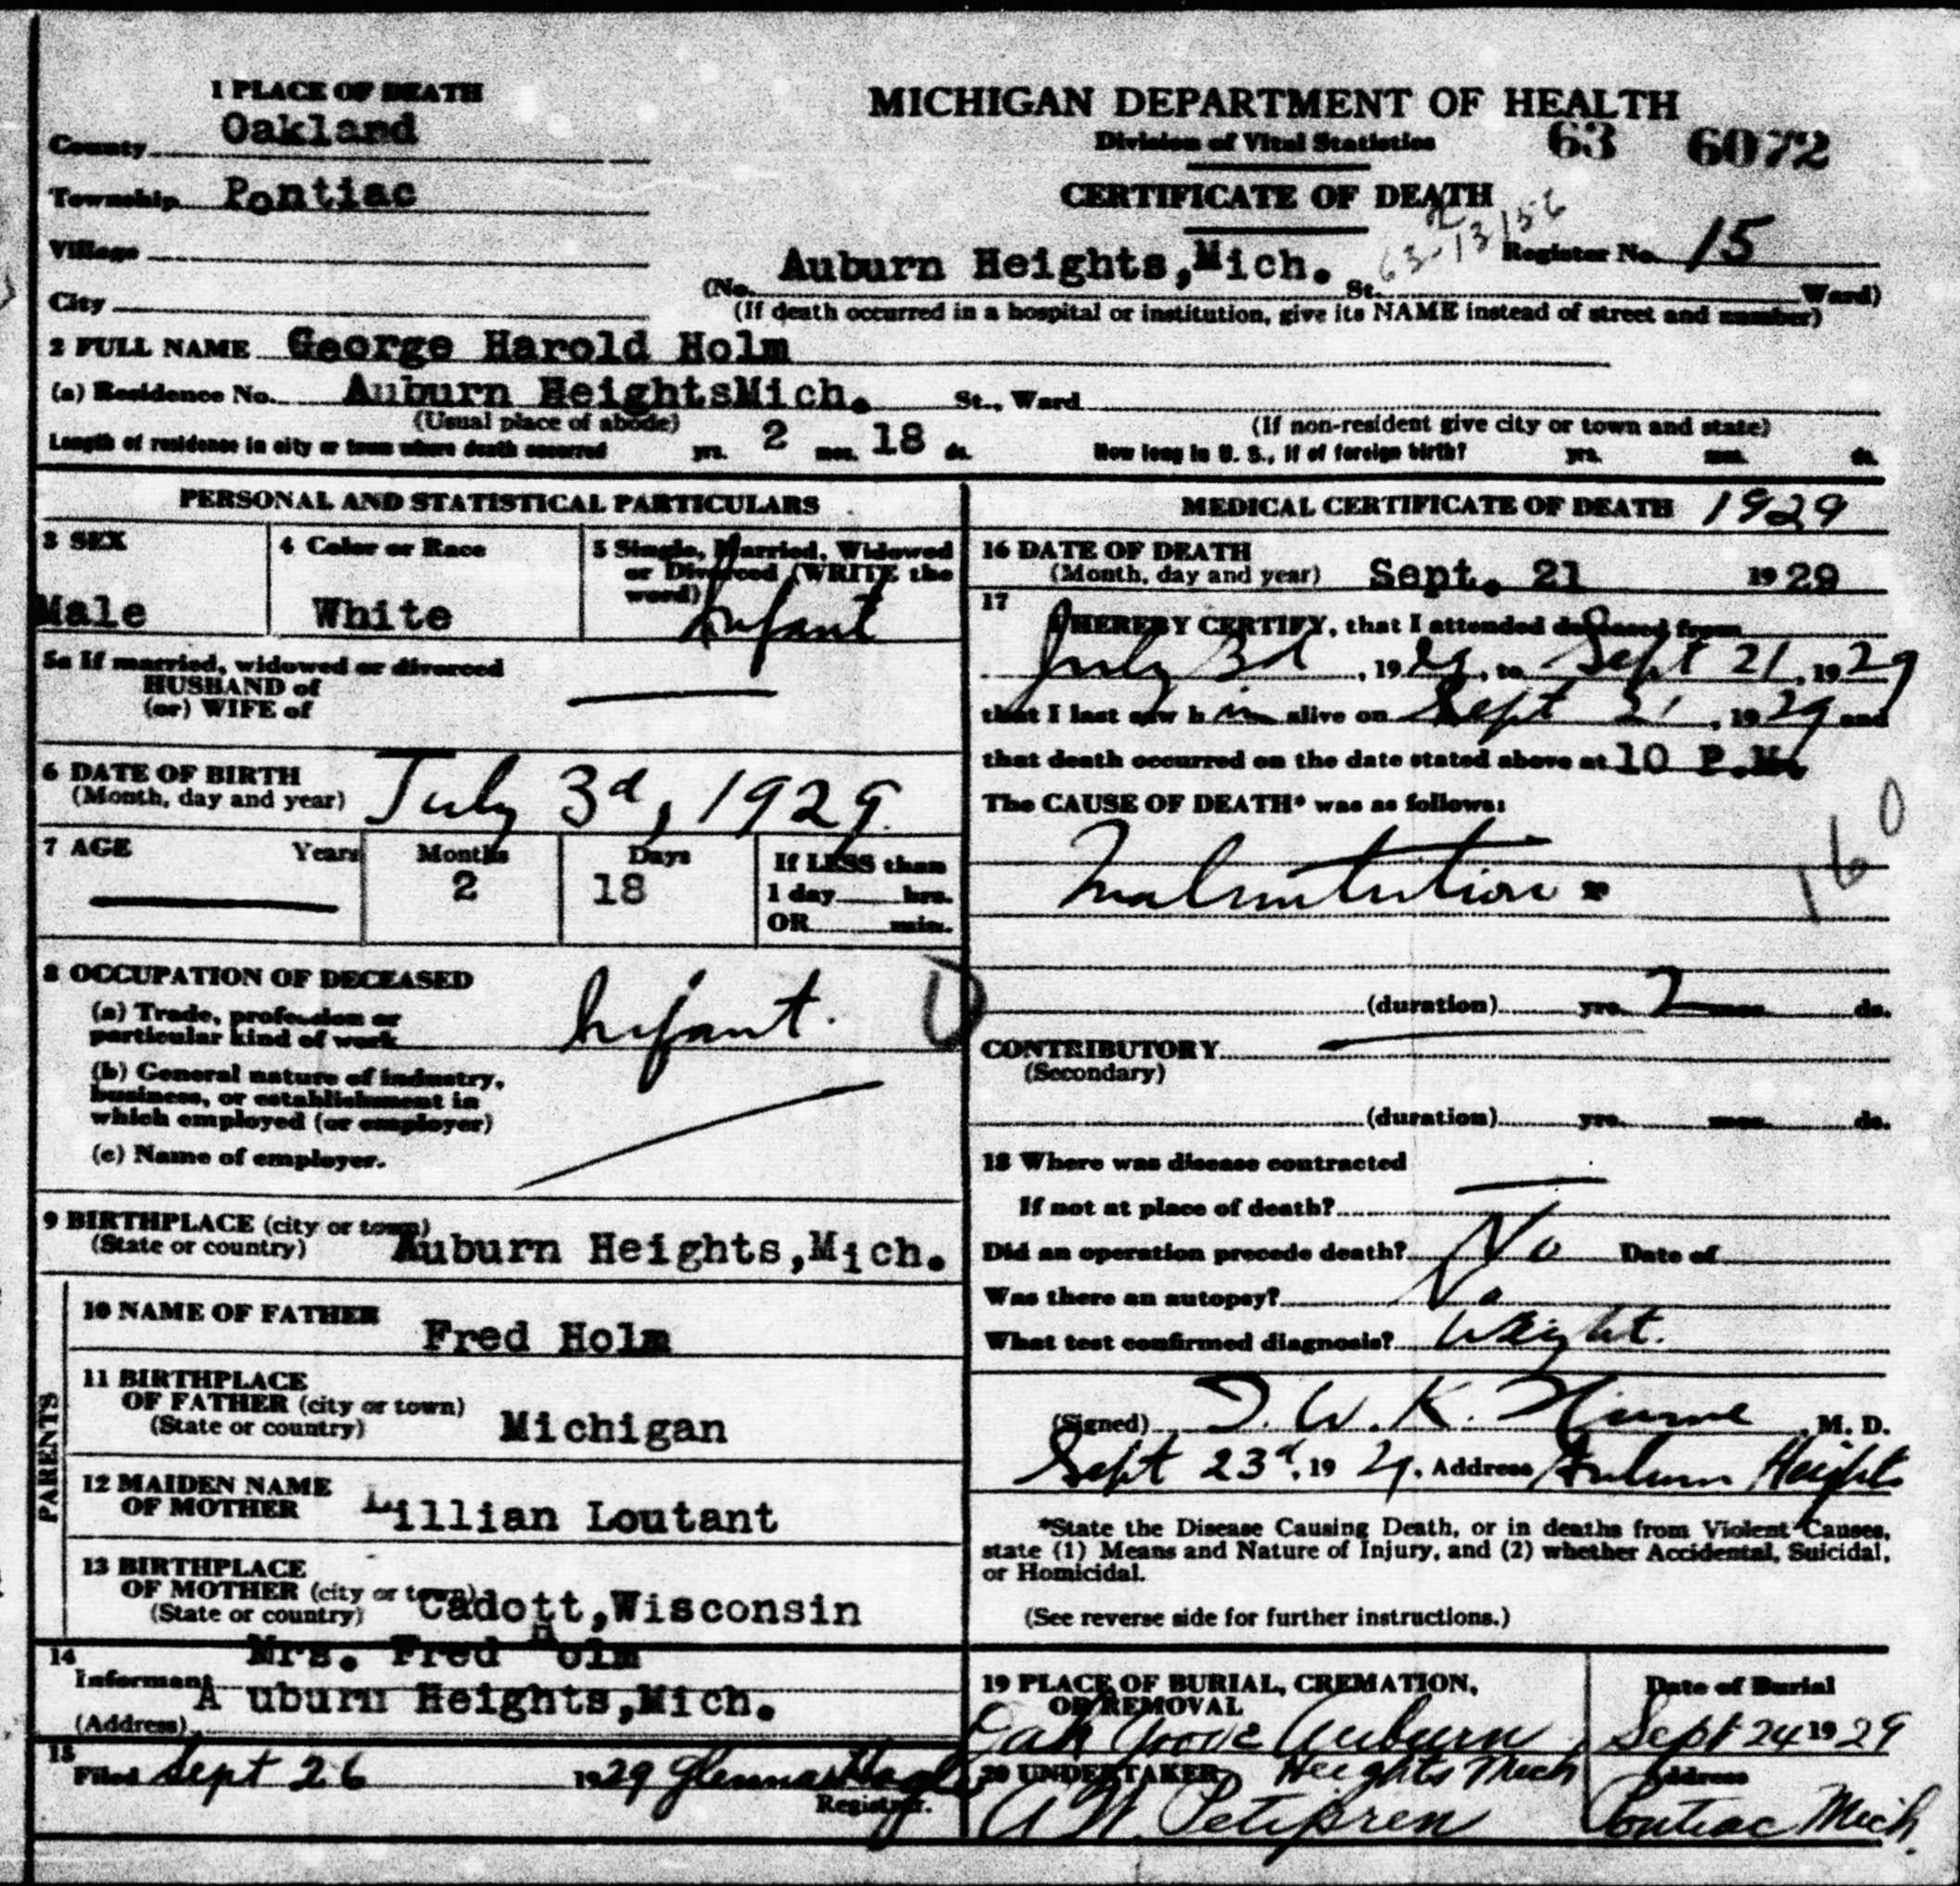 1 PLACE OF DEATH
County Oakland
Township Pontiac
Village
City
MICHIGAN DEPARTMENT OF HEALTH
Division of Vital Statistics
63 6072
CERTIFICATE OF DEATH
Register No. 15
(No. Auburn Heights,Mich. St. Ward)
(If death occurred in a hospital or institution, give its NAME instead of street and number)
2 FULL NAME George Harold Holm
(a) Residence No. Auburn HeightsMich. St., Ward
(Usual place of abode) (If non-resident give city or town and state)
Length of residence in city or town where death occurred yrs. 2 mos. 18 ds. How long in U. S., if of foreign birth? yrs. mos. ds.
PERSONAL AND STATISTICAL PARTICULARS
3 SEX
Male
4 Color or Race
White
5 Single, Married, Widowed
or Divorced (WRITE the
word)
Infant
5a If married, widowed or divorced
HUSBAND of
(or) WIFE of
6 DATE OF BIRTH
(Month, day and year) July 3d, 1929.
7 AGE Years Months Days If LESS than
2 18 1 day hrs.
OR min.
8 OCCUPATION OF DECEASED
(a) Trade, profession or
particular kind of work Infant.
(b) General nature of industry,
business, or establishment in
which employed (or employer)
(c) Name of employer.
9 BIRTHPLACE (city or town)
(State or country) Auburn Heights,Mich.
PARENTS
10 NAME OF FATHER
Fred Holm
11 BIRTHPLACE
OF FATHER (city or town)
(State or country) Michigan
12 MAIDEN NAME
OF MOTHER Lillian Loutant
13 BIRTHPLACE
OF MOTHER (city or town)
(State or country) Cadott,Wisconsin
14 Mrs. Fred Holm
Informant
(Address) A uburn Heights,Mich.
15
Filed Sept 26 1929 Glenna
Registrar.
MEDICAL CERTIFICATE OF DEATH 1929
16 DATE OF DEATH
(Month, day and year) Sept. 21 1929
17
I HEREBY CERTIFY, that I attended deceased from
July 3d, 1929, to Sept 21, 1929
that I last saw h im alive on Sept 21, 1929 and
that death occurred on the date stated above at 10 P.M.
The CAUSE OF DEATH* was as follows:
160
Malnutrition
(duration) yrs. 2 mos. ds.
CONTRIBUTORY
(Secondary)
(duration) yrs. mos. ds.
18 Where was disease contracted
If not at place of death?
Did an operation precede death? No Date of
Was there an autopsy? No
What test confirmed diagnosis? Weight.
(Signed) W. K. M. D.
Sept 23d, 1929, Address Auburn Heights
*State the Disease Causing Death, or in deaths from Violent Causes,
state (1) Means and Nature of Injury, and (2) whether Accidental, Suicidal,
or Homicidal.
(See reverse side for further instructions.)
19 PLACE OF BURIAL, CREMATION,
OR REMOVAL
Oak Grove Auburn
Heights Mich
Date of Burial
Sept 24 1929
20 UNDERTAKER
A W. Petipren
Address
Pontiac Mich.